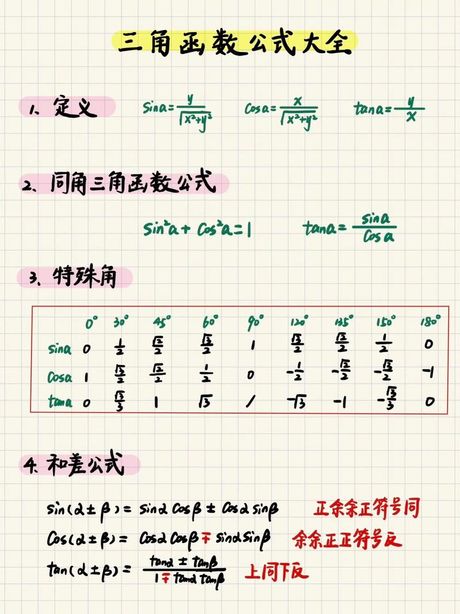 三角函数公式大全
1、定义 sina=y/√(x²+y²) cosa=x/√(x²+y²) tana=y/x
2、同角三角函数公式
sin²a+cos²a=1 tana=sina/cosa
3、特殊角
0° 30° 45° 60° 90° 120° 135° 150° 180°
sina 0 1/2 √2/2 √3/2 1 √3/2 √2/2 1/2 0
cosa 1 √3/2 √2/2 1/2 0 -1/2 -√2/2 -√3/2 -1
tana 0 √3/3 1 √3 / -√3 -1 -√3/3 0
4、和差公式
sin(α±β)= sinα cosβ ± cosα sinβ 正余余正符号同
cos(α±β)= cosα cosβ ∓ sinα sinβ 余余正正符号反
tan(α±β)= (tanα ± tanβ)/(1∓tanα tanβ) 上同下反